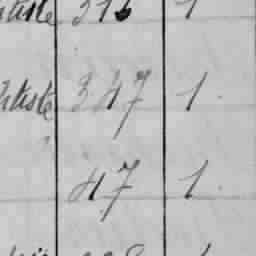 tiste 316 1
tiste 347 1
47 1